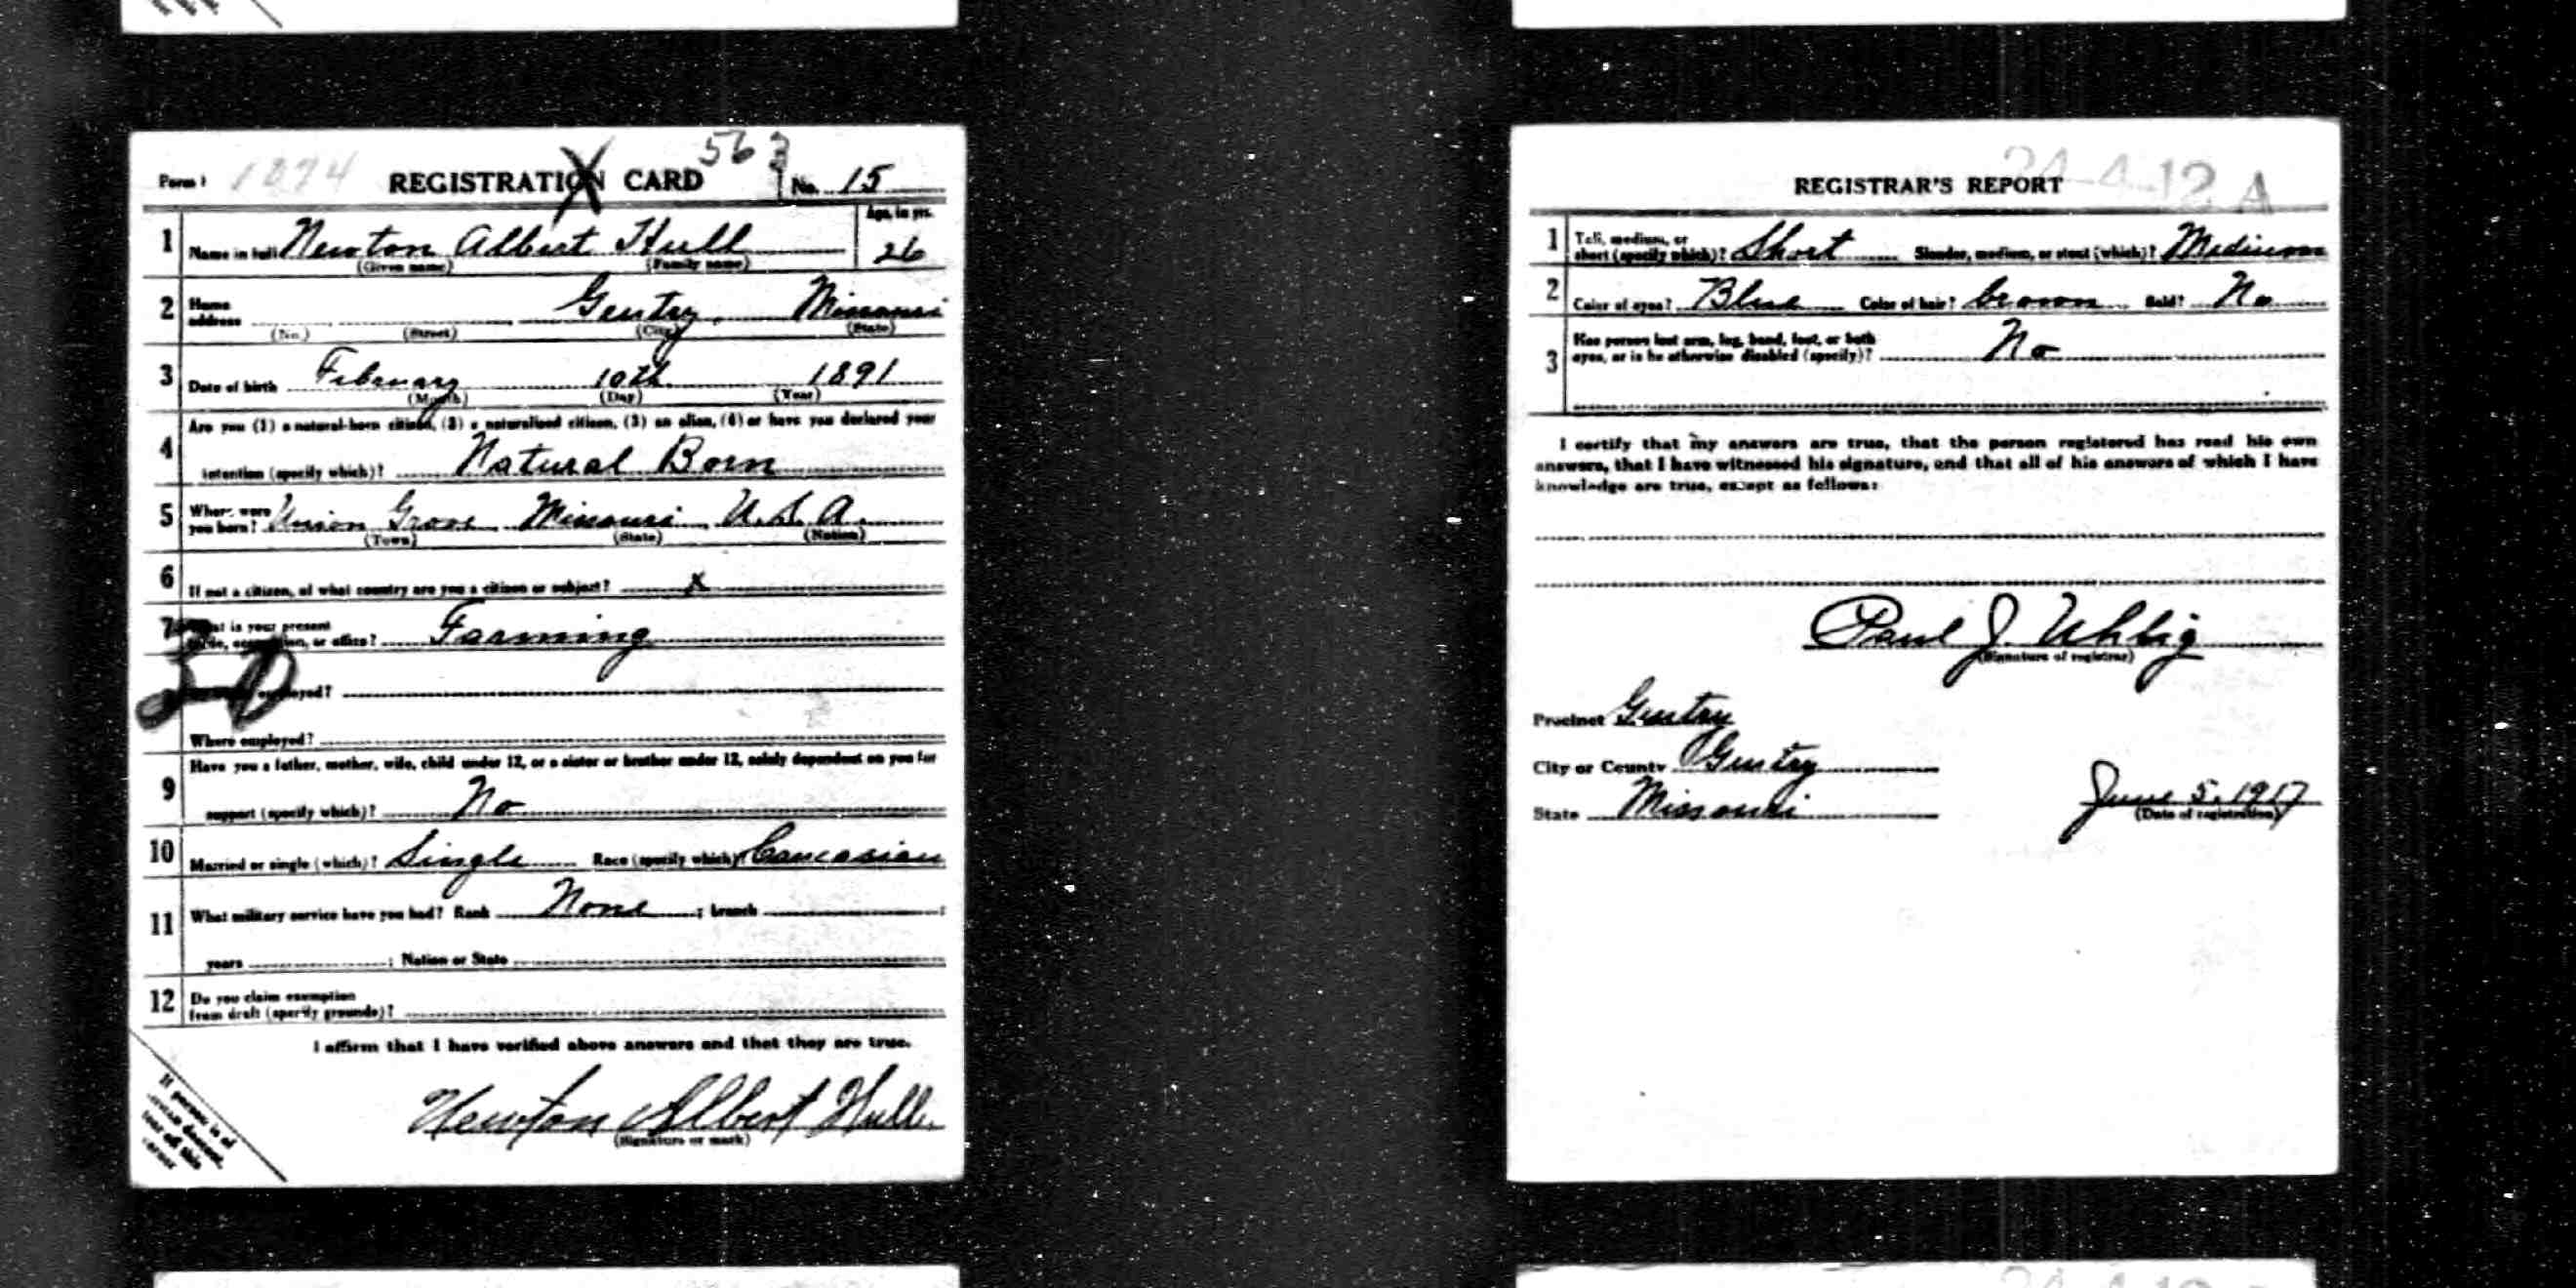 Form 1 1874 REGISTRATION CARD 563 No. 15
1 Name in full Newton Albert Hull Age, in yrs. 26
(Given name) (Family name)
2 Home address Gentry, Missouri
(No.) (Street) (City) (State)
3 Date of birth February 10th 1891
(Month) (Day) (Year)
4 Are you (1) a natural-born citizen, (2) a naturalized citizen, (3) an alien, (4) or have you declared your
intention (specify which)? Natural Born
5 Where were you born? Union Grove Missouri U.S.A.
(Town) (State) (Nation)
6 If not a citizen, of what country are you a citizen or subject? x
7 What is your present
trade, occupation, or office? Farming
employed?
Where employed?
9 Have you a father, mother, wife, child under 12, or a sister or brother under 12, solely dependent on you for
support (specify which)? No
10 Married or single (which)? Single Race (specify which)? Caucasian
11 What military service have you had? Rank None ; branch ;
years ; Nation or State
12 Do you claim exemption
from draft (specify grounds)?
I affirm that I have verified above answers and that they are true.
Newton Albert Hull
(Signature or mark)
If person is of
African descent,
tear off this
corner
REGISTRAR'S REPORT
24-4-12 A
1 Tall, medium, or
short (specify which)? Short Slender, medium, or stout (which)? Medium
2 Color of eyes? Blue Color of hair? brown Bald? No
3 Has person lost arm, leg, hand, foot, or both
eyes, or is he otherwise disabled (specify)? No
I certify that my answers are true, that the person registered has read his own
answers, that I have witnessed his signature, and that all of his answers of which I have
knowledge are true, except as follows:
Paul J. Uhlig
(Signature of registrar)
Precinct Gentry
City or County Gentry
State Missouri June 5, 1917
(Date of registration)